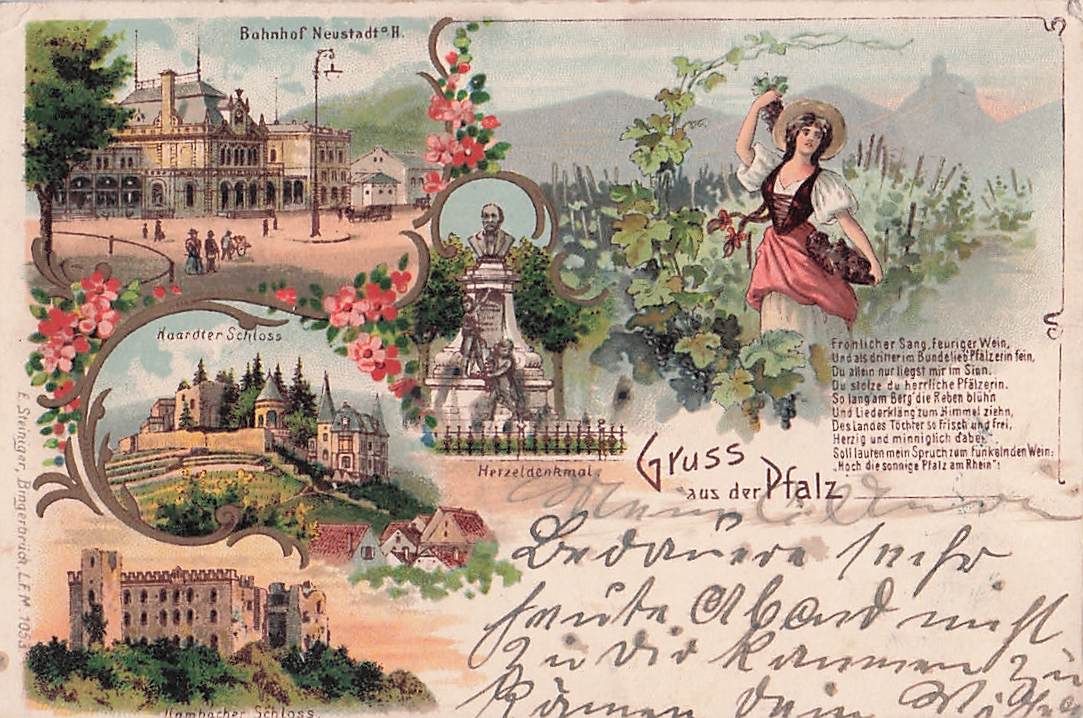 Bahnhof Neustadt a. H.
Haardter Schloss
Herzeldenkmal.
Hambacher Schloss
Gruss
aus der Pfalz
Fröhlicher Sang, feuriger Wein,
Und als dritter im Bunde lieb Pfälzerin fein,
Du allein nur liegst mir im Sinn.
Du stolze du herrliche Pfälzerin.
So lang am Berg die Reben blühn
Und Liederklang zum Himmel ziehn,
Des Landes Töchter so frisch und frei,
Herzig und minniglich dabei
Soll lauten mein Spruch zum funkelnden Wein:
„Hoch die sonnige Pfalz am Rhein“!
E. Steiniger, Bingerbrück L.F.M. 1053
Bedaure sehr
heute Abend nicht
zu dir kommen zu
können dein